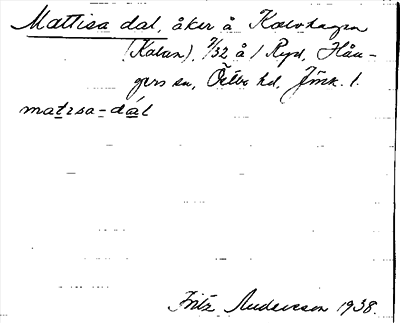 Mattisa dal, åker å Kalvhagen
(Kalan), 2/32 å 1 Ryd, Hån-
gers sn, Östbo hd, Jönk. l.
matisa-dál
Fritz Anderson 1938.